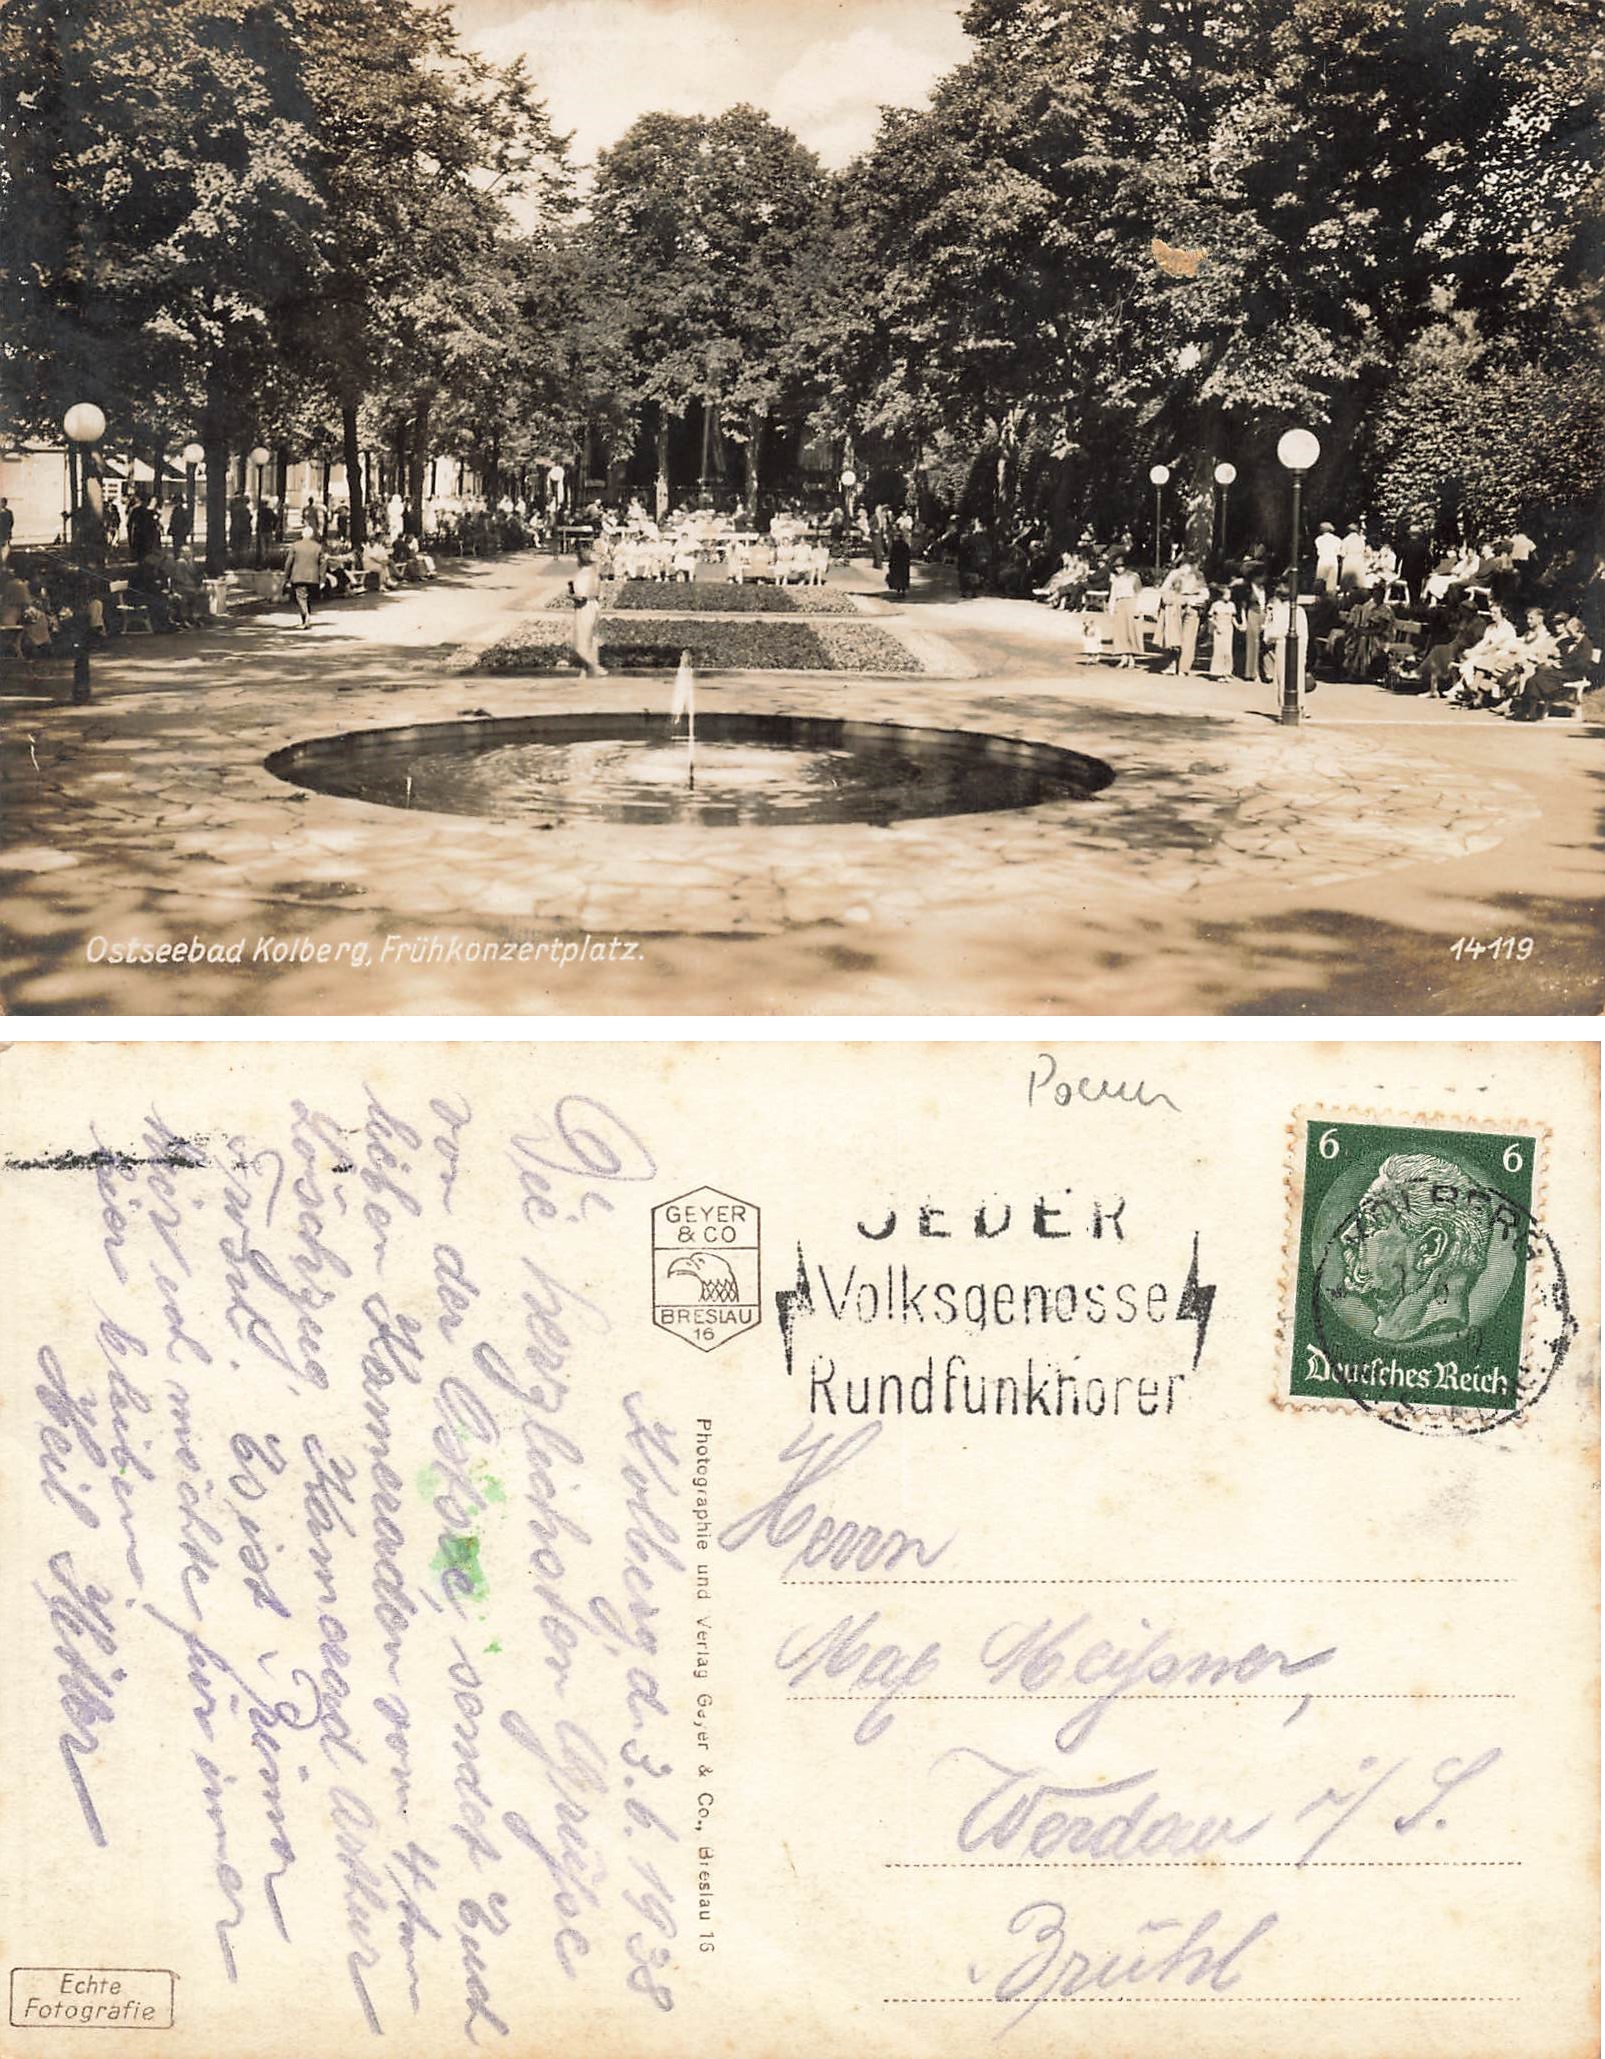 Ostseebad Kolberg, Frühkonzertplatz.
14119
Kolberg, d. 3.6.1938
Die herzlichsten Grüße
von der Ostsee, sendet Euch
lieben Kameraden vom 4ten
Löschzug, Kamerad Arthur
Es ist prima
hier und möchte für immer
hier bleiben.
Heil Hitler
GEYER
& CO
BRESLAU
16
Photographie und Verlag Geyer & Co., Breslau 16
Echte
Fotografie
JEDER
Volksgenosse
Rundfunkhörer
6 6
Deutsches Reich
KOLBERG
Herrn
Max Meißner,
Werdau i/S.
Brühl